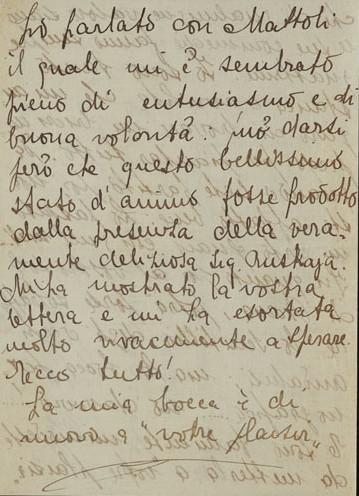 Ho parlato con Mattoli
il quale mi è sembrato
pieno di entusiasmo e di
buona volontà. può darsi
però che questo bellissimo
stato d'animo fosse prodotto
dalla presenza della vera-
mente deliziosa sig
M'ha mostrato la vostra
lettera e mi ha esortata
molto vivacemente a sperare.
Ecco tutto!
La mia bocca è di
nuovo a "votre plaisir"